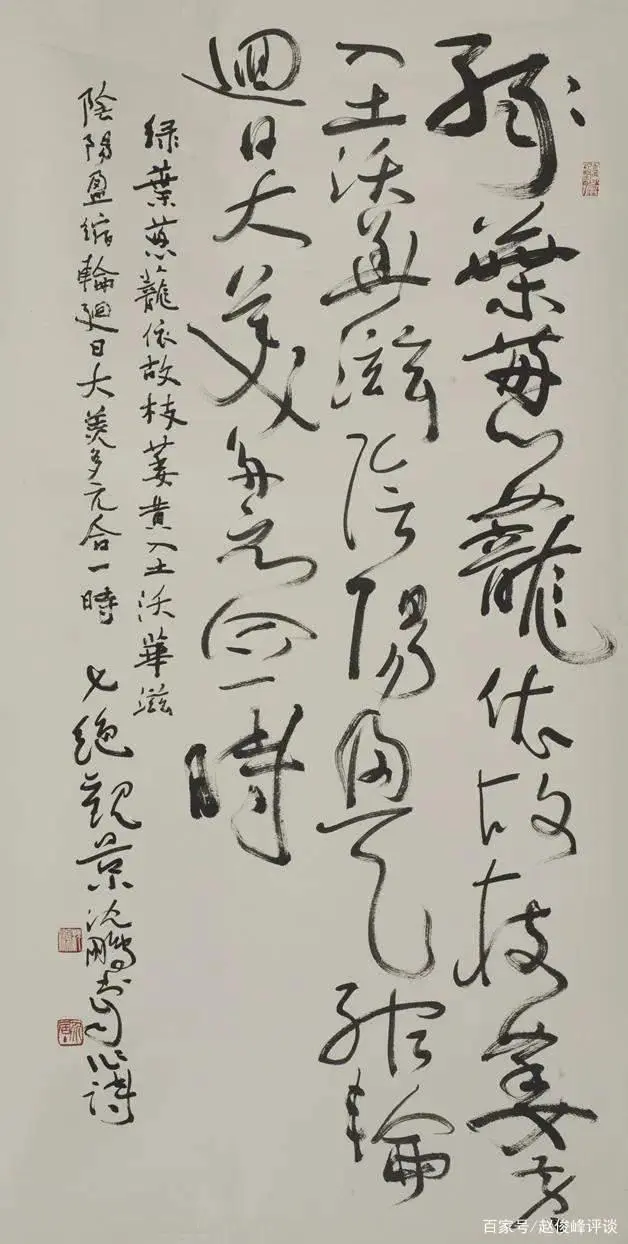 绿葉葱蘢依故枝萎黄
入土沃華滋陰陽盈縮輪
迴日大美多元合一時
绿葉葱蘢依故枝萎黄入土沃華滋
陰陽盈縮輪廻日大美多元合一時 七絶觀景沈鵬書自作詩
百家号/赵俊峰评谈